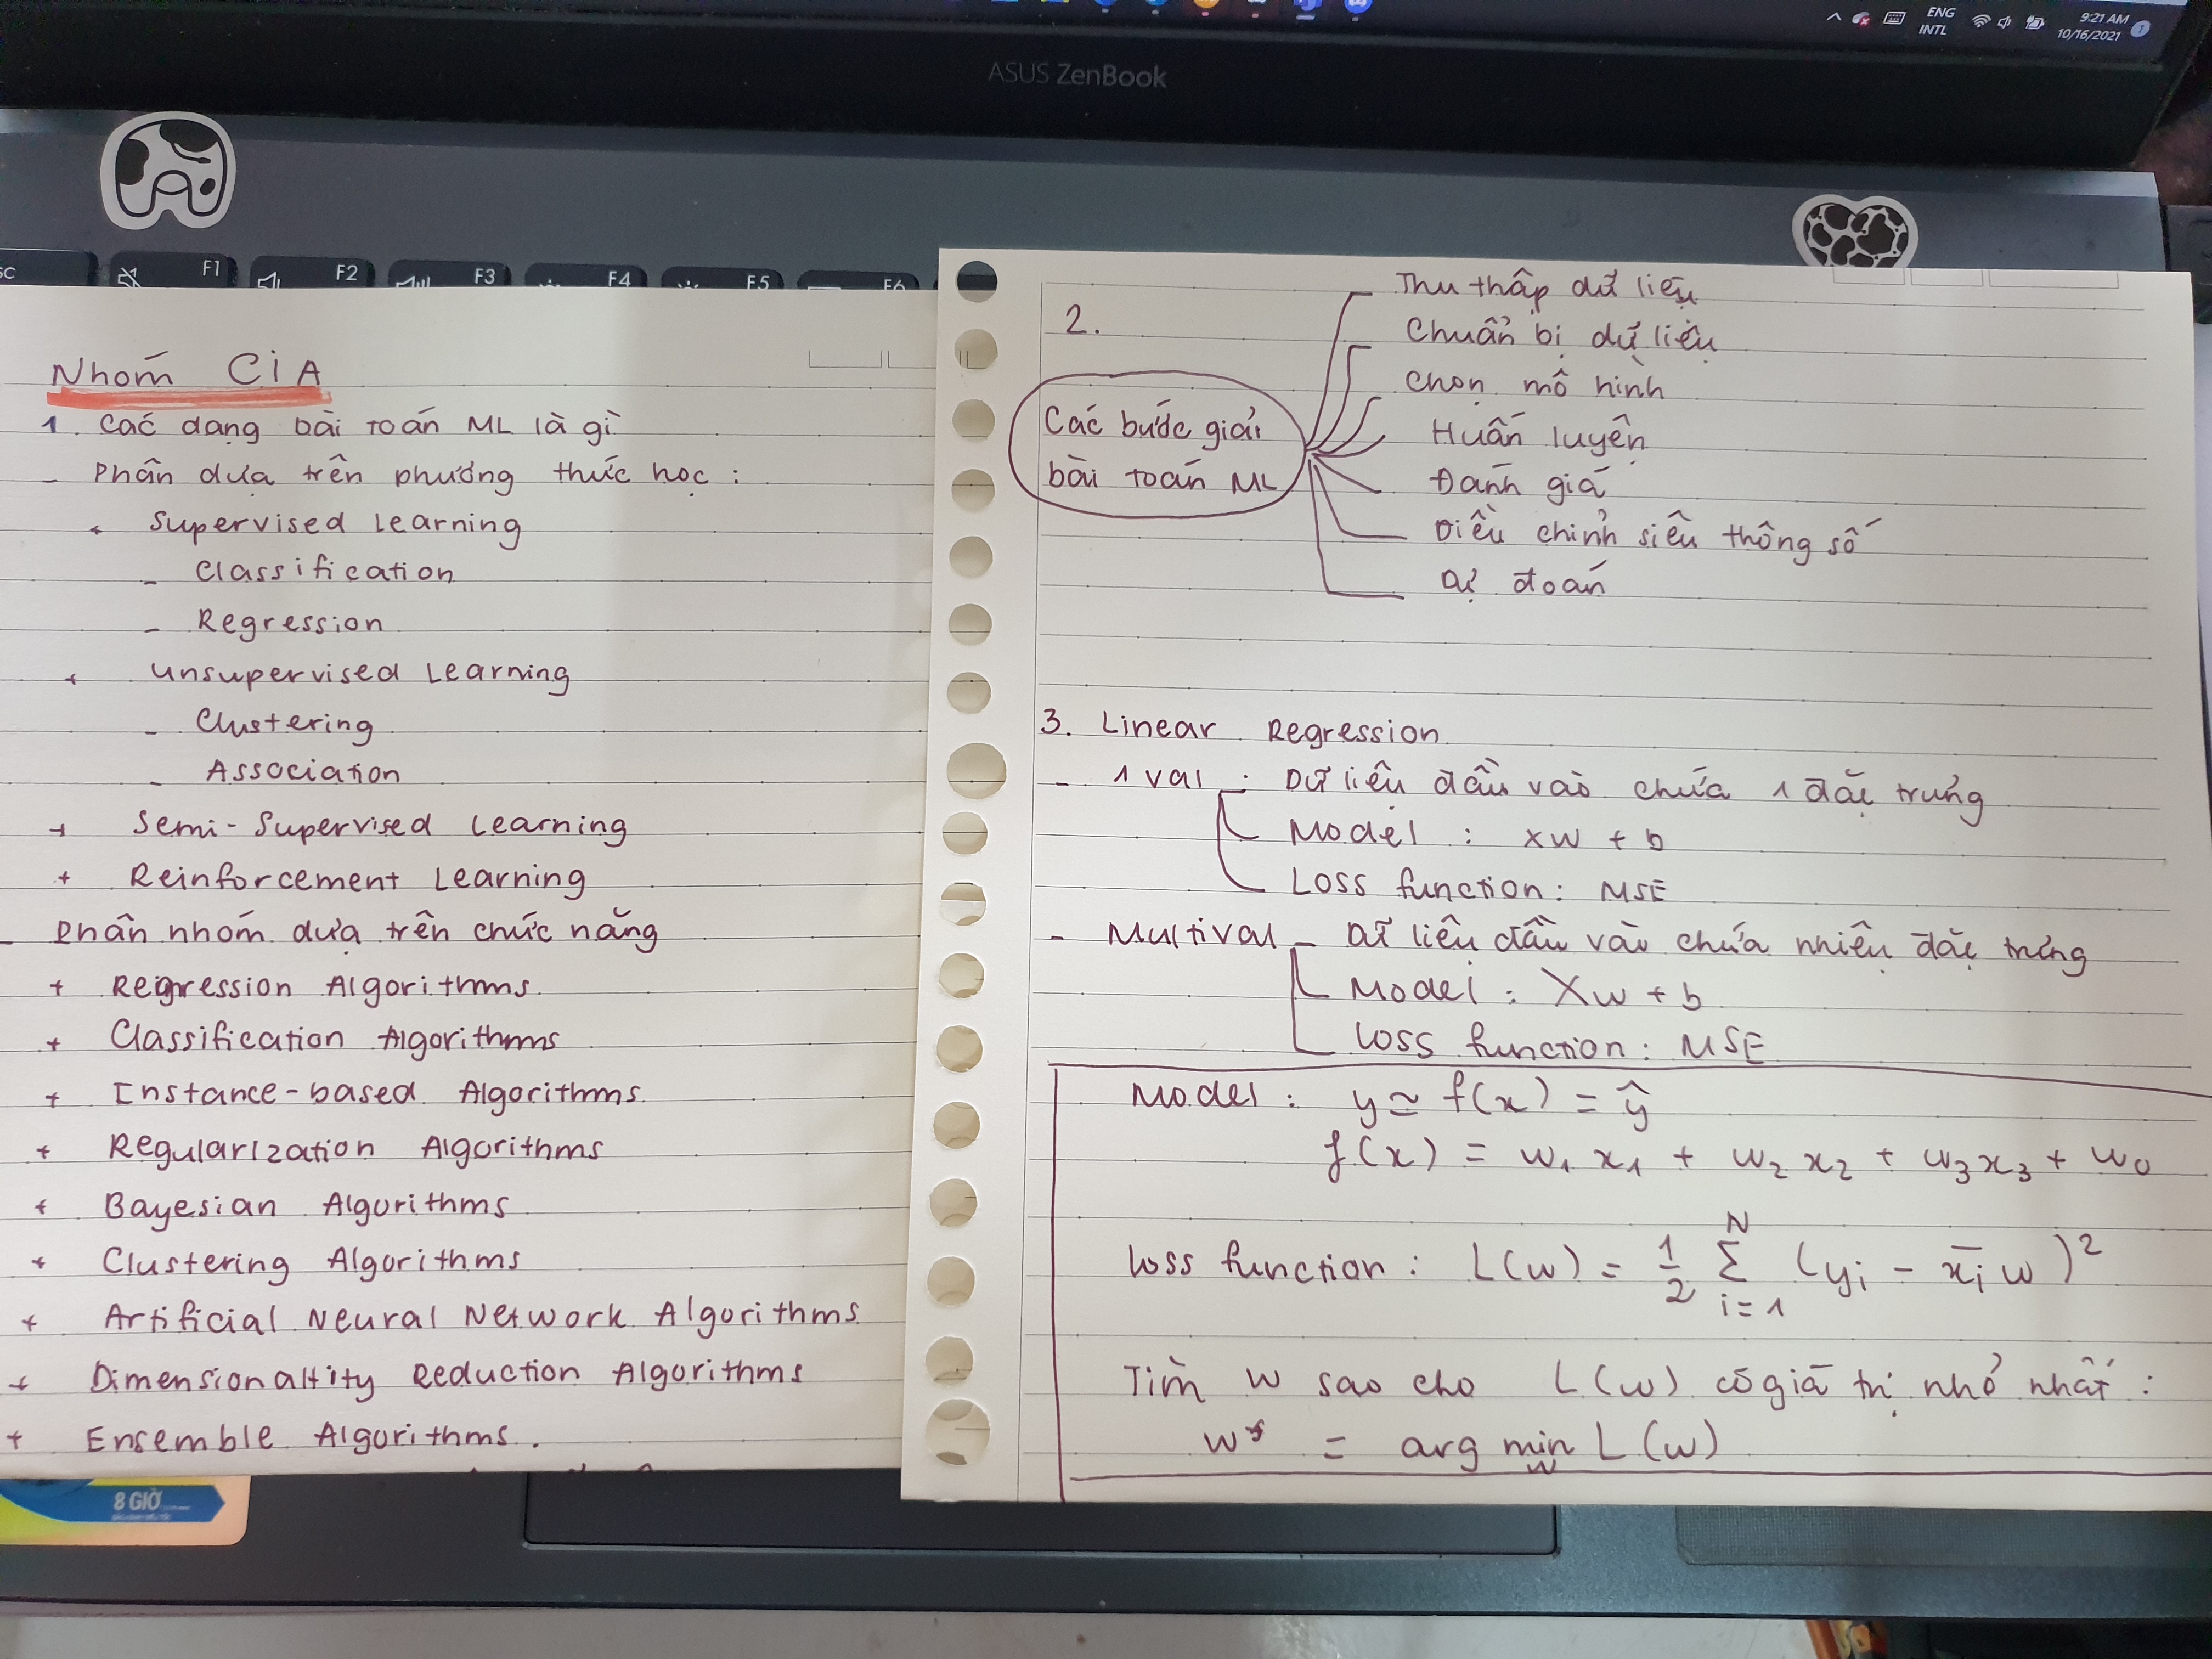 Nhóm CiA
1. các dạng bài toán ML là gì
- phân dựa trên phương thức học :
+ Supervised Learning
- Classification
- Regression
+ Unsupervised Learning
- Clustering
- Association
+ Semi-Supervised Learning
+ Reinforcement Learning
- phân nhóm dựa trên chức năng
+ Regression Algorithms
+ Classification Algorithms
+ Instance-based Algorithms
+ Regularization Algorithms
+ Bayesian Algorithms
+ Clustering Algorithms
+ Artificial Neural Network Algorithms
+ Dimensionaltity Reduction Algorithms
+ Ensemble Algorithms.
2.
Các bước giải
bài toán ML
Thu thập dữ liệu
Chuẩn bị dữ liệu
chọn mô hình
Huấn luyện
Đánh giá
Điều chỉnh siêu thông số
ự đoán
3. Linear Regression
- 1 val : Dữ liệu đầu vào chứa 1 đặc trưng
Model : xw + b
Loss function : MSE
- Multival - dữ liệu đầu vào chứa nhiều đặc trưng
Model : Xw + b
Loss function : MSE
Model : y ≃ f(x) = ŷ
f(x) = w₁x₁ + w₂x₂ + w₃x₃ + w₀
loss function : L(w) = 1/2 Σ (yᵢ - x̄ᵢw)²
N
i=1
Tìm w sao cho L(w) có giá trị nhỏ nhất :
w* = arg min L(w)
w
ASUS ZenBook
F1
F2
F3
F4
F5
F6
8 GIỜ
ENG
INTL
9:21 AM
10/16/2021